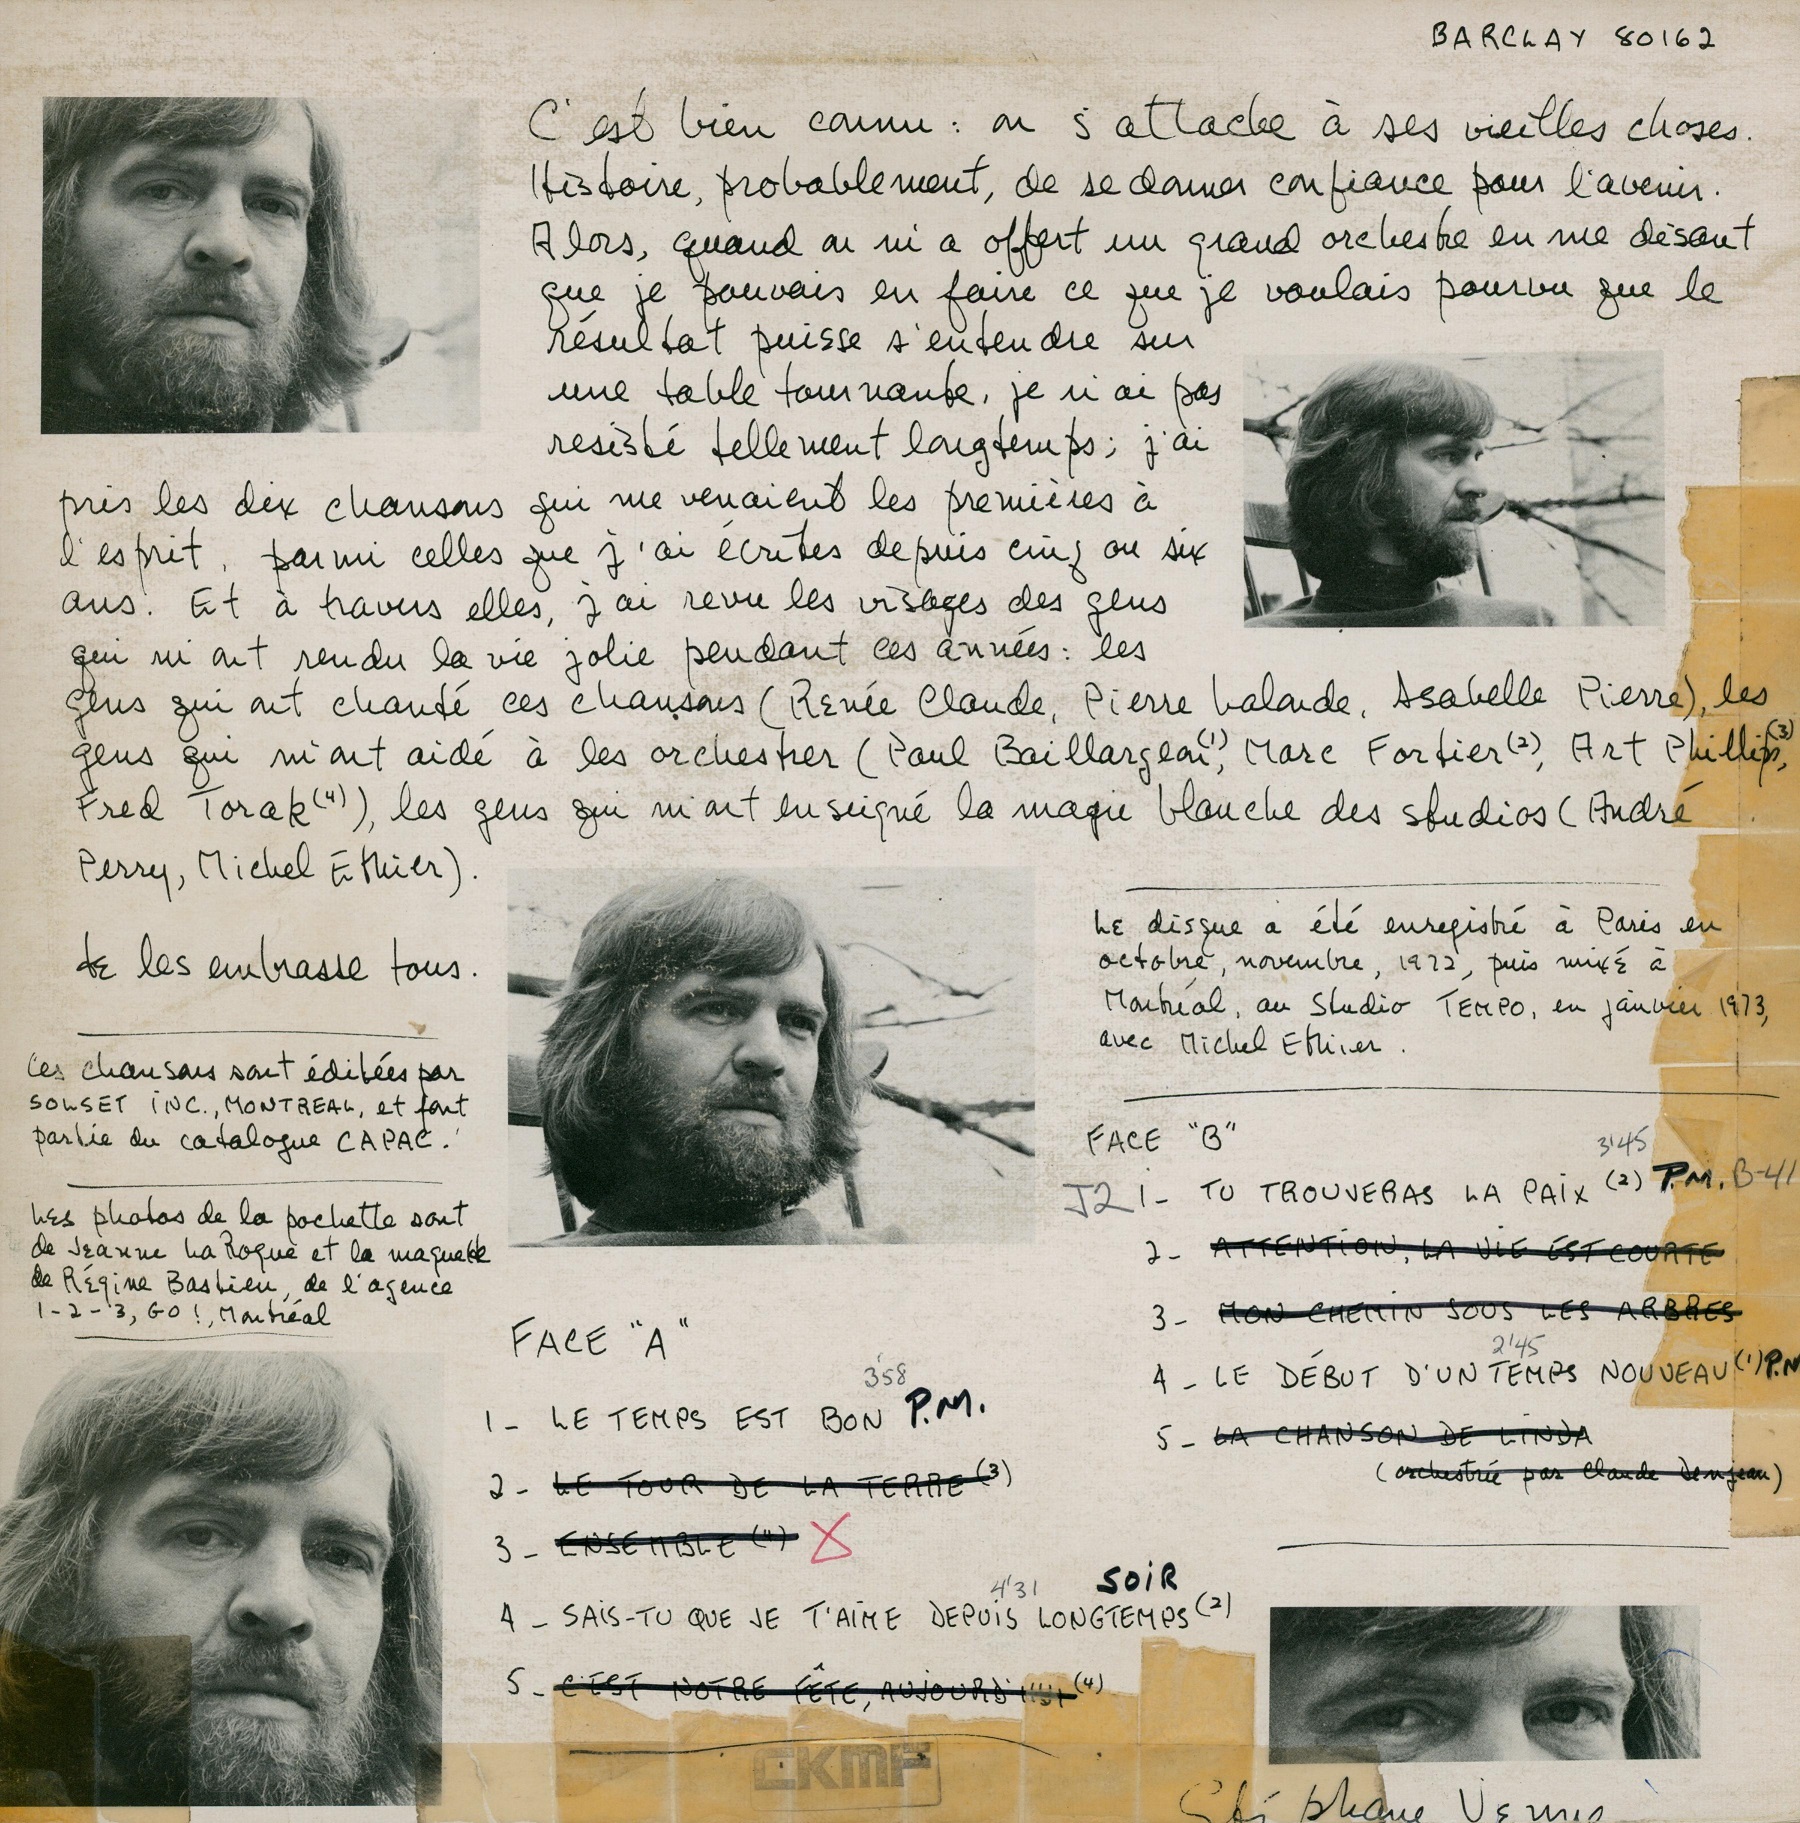 BARCLAY 80162
C'est bien connu : on s'attache à ses vieilles choses.
Histoire, probablement, de se donner confiance pour l'avenir.
Alors, quand on m'a offert un grand orchestre en me disant
que je pouvais en faire ce que je voulais pourvu que le
résultat puisse s'entendre sur
une table tournante, je n'ai pas
resisté tellement longtemps ; j'ai
pris les dix chansons qui me venaient les premières à
l'esprit, parmi celles que j'ai écrites depuis cinq ou six
ans. Et à travers elles, j'ai revu les visages des gens
qui m'ont rendu la vie jolie pendant ces années : les
gens qui ont chanté ces chansons (Renée Claude, Pierre Lalonde, Isabelle Pierre), les
gens qui m'ont aidé à les orchestrer (Paul Baillargeon(1), Marc Fortier(2), Art Phillips(3),
Fred Torak(4)), les gens qui m'ont enseigné la magie blanche des studios (André
Perry, Michel Ethier).
Je les embrasse tous.
Ces chansons sont éditées par
SOLSET INC., MONTREAL, et font
partie du catalogue CAPAC.
Les photos de la pochette sont
de Jeanne LaRoque et la maquette
de Régine Bastien, de l'agence
1-2-3, GO!, Montréal
Le disque a été enregistré à Paris en
octobre, novembre, 1972, puis mixé à
Montréal, au Studio TEMPO, en janvier 1973,
avec Michel Ethier.
FACE "A"
3'58
1- LE TEMPS EST BON P.M.
2- LE TOUR DE LA TERRE (3)
3- ENSEMBLE (4) X
4'31 SOIR
4- SAIS-TU QUE JE T'AIME DEPUIS LONGTEMPS (2)
5- C'EST NOTRE FÊTE, AUJOURD'HUI (4)
FACE "B"
3'45
J2 1- TU TROUVERAS LA PAIX (2) P.M. B-41
2- ATTENTION, LA VIE EST COURTE
3- MON CHEMIN SOUS LES ARBRES
2'45
4- LE DÉBUT D'UN TEMPS NOUVEAU (1) P.M
5- LA CHANSON DE LINDA
(orchestrée par Claude Denjean)
CKMF
Stéphane Venne